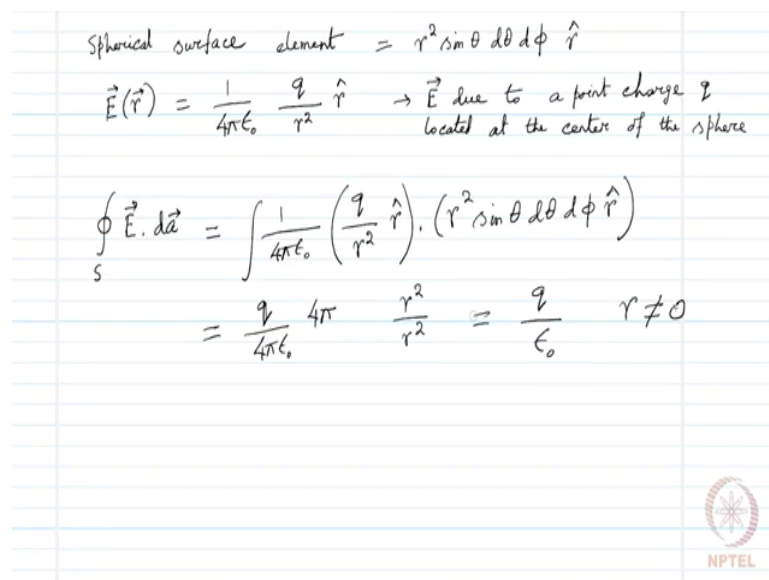 Spherical surface element = r² sinθ dθ dϕ r̂
E⃗(r⃗) = 1/4πϵ₀ q/r² r̂ → E⃗ due to a point charge q
located at the center of the sphere
∮_S E⃗ . da⃗ = ∫ 1/4πϵ₀ (q/r² r̂) . (r² sinθ dθ dϕ r̂)
= q/4πϵ₀ 4π r²/r² = q/ϵ₀ r ≠ 0
NPTEL